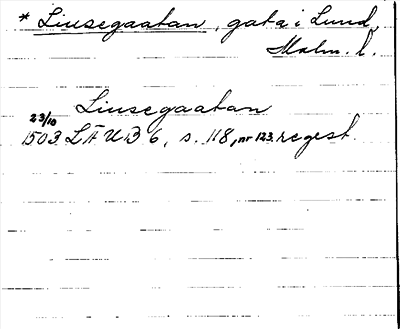 * Liusegaatan, gata i Lund,
Malm. l.
Liusegaatan
23/10
1503 LÄUB 6, s. 118, nr 123. regest.